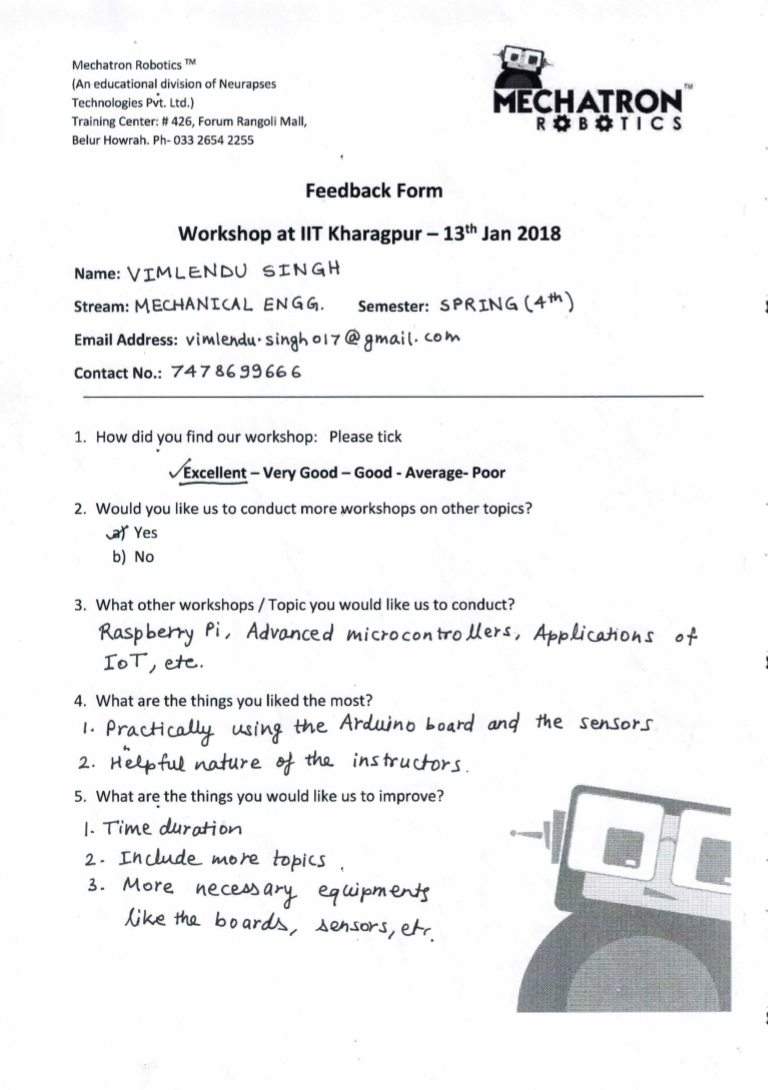 Mechatron Robotics TM
(An educational division of Neurapses
Technologies Pvt. Ltd.)
Training Center: # 426, Forum Rangoli Mall,
Belur Howrah. Ph- 033 2654 2255
MECHATRON TM
ROBOTICS
Feedback Form
Workshop at IIT Kharagpur – 13th Jan 2018
Name: VIMLENDU SINGH
Stream: MECHANICAL ENGG. Semester: SPRING (4th)
Email Address: vimlendu.singh017@gmail.com
Contact No.: 7478699666
1. How did you find our workshop: Please tick
✓Excellent – Very Good – Good - Average- Poor
2. Would you like us to conduct more workshops on other topics?
a) Yes
b) No
3. What other workshops / Topic you would like us to conduct?
Raspberry Pi, Advanced microcontrollers, Applications of
IoT, etc.
4. What are the things you liked the most?
1. Practically using the Arduino board and the sensors
2. Helpful nature of the instructors.
5. What are the things you would like us to improve?
1. Time duration
2. Include more topics
3. More necessary equipments
like the boards, sensors, etc.